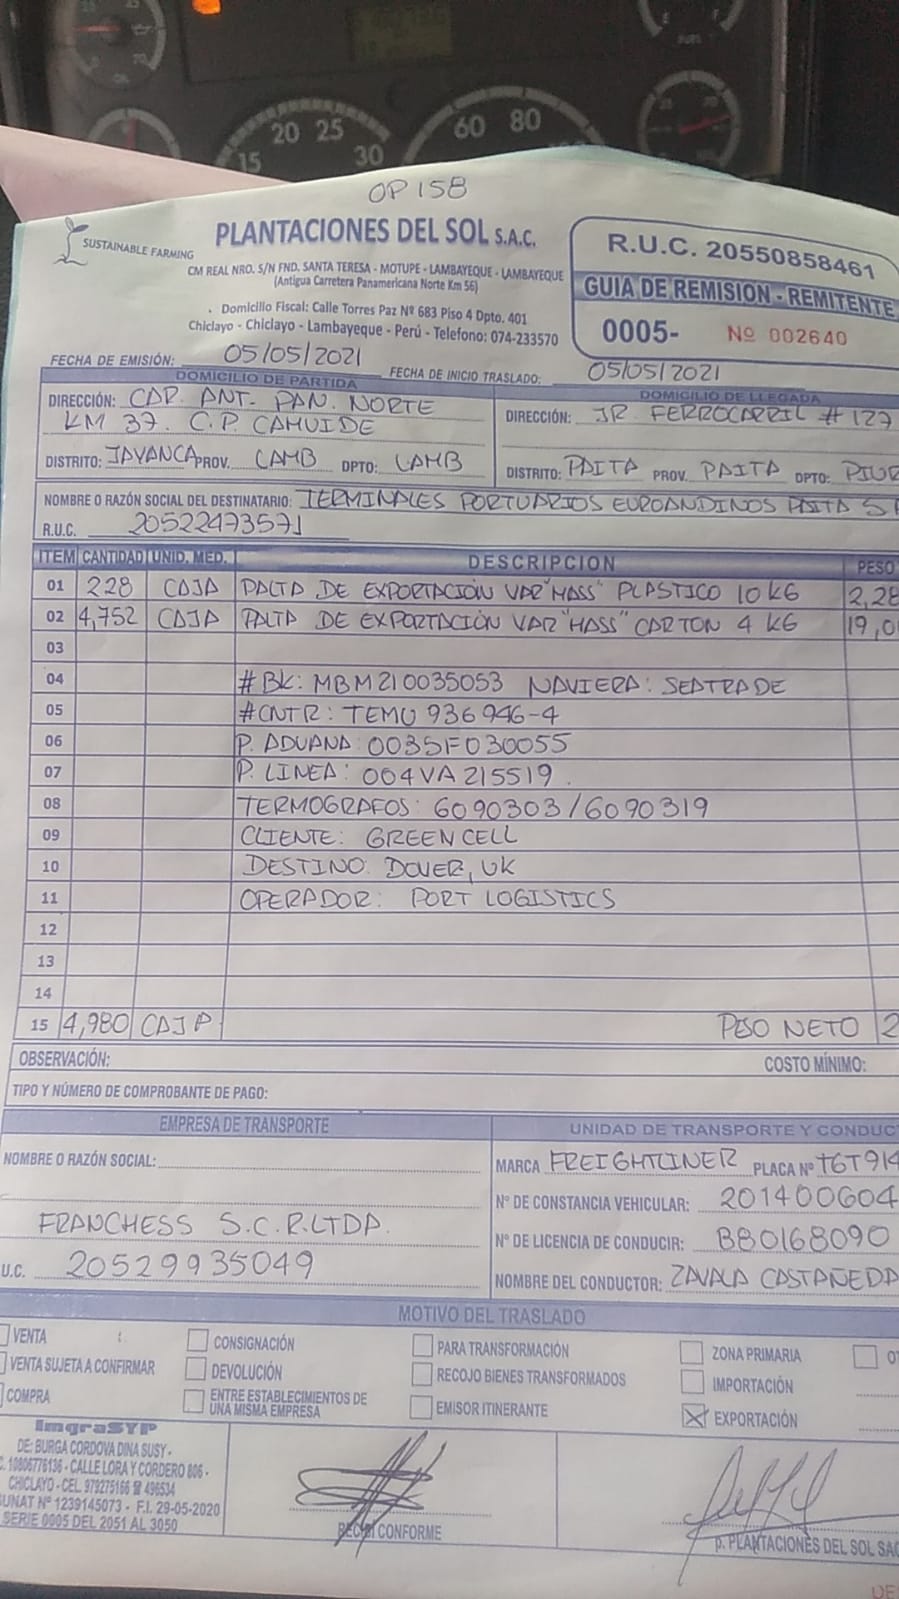 15 20 25 30
60 80
OP 158
SUSTAINABLE FARMING
PLANTACIONES DEL SOL S.A.C.
CM REAL NRO. S/N FND. SANTA TERESA - MOTUPE - LAMBAYEQUE - LAMBAYEQUE
(Antigua Carretera Panamericana Norte Km 56)
. Domicilio Fiscal: Calle Torres Paz Nº 683 Piso 4 Dpto. 401
Chiclayo - Chiclayo - Lambayeque - Perú - Telefono: 074-233570
R.U.C. 20550858461
GUIA DE REMISION - REMITENTE
0005- Nº 002640
FECHA DE EMISIÓN: 05/05/2021 FECHA DE INICIO TRASLADO: 05/05/2021
DOMICILIO DE PARTIDA
DIRECCIÓN: CAR. ANT. PAN. NORTE
KM 37. C.P. CAHUIDE
DISTRITO: JAYANCA PROV. LAMB DPTO: LAMB
DOMICILIO DE LLEGADA
DIRECCIÓN: JR. FERROCARRIL # 127
DISTRITO: PAITA PROV. PAITA DPTO: PIUR
NOMBRE O RAZÓN SOCIAL DEL DESTINATARIO: TERMINALES PORTUARIOS EUROANDINOS PAITA
R.U.C. 20522473571
ITEM CANTIDAD UNID. MED. DESCRIPCION PESO
01 228 CAJA PALTA DE EXPORTACIÓN VAR "HASS" PLASTICO 10 KG 2,28
02 4,752 CAJA PALTA DE EXPORTACIÓN VAR "HASS" CARTON 4 KG 19,0
03
04 # BK: MBM210035053 NAVIERA: SEATRADE
05 #CNTR: TEMU 936946-4
06 P. ADUANA: 0035F030055
07 P. LINEA: 004VA215519.
08 TERMOGRAFOS: 6090303/6090319
09 CLIENTE: GREENCELL
10 DESTINO: DOVER, UK
11 OPERADOR: PORT LOGISTICS
12
13
14
15 4,980 CAJA PESO NETO 2
OBSERVACIÓN: COSTO MÍNIMO:
TIPO Y NÚMERO DE COMPROBANTE DE PAGO:
EMPRESA DE TRANSPORTE
NOMBRE O RAZÓN SOCIAL:
FRANCHESS S.C.R.LTDA.
U.C. 20529935049
UNIDAD DE TRANSPORTE Y CONDUC
MARCA FREIGHTLINER PLACA Nº T6T914
Nº DE CONSTANCIA VEHICULAR: 201400604
Nº DE LICENCIA DE CONDUCIR: B80168090
NOMBRE DEL CONDUCTOR: ZAVALA CASTAÑEDA
MOTIVO DEL TRASLADO
VENTA CONSIGNACIÓN PARA TRANSFORMACIÓN ZONA PRIMARIA
VENTA SUJETA A CONFIRMAR DEVOLUCIÓN RECOJO BIENES TRANSFORMADOS IMPORTACIÓN
COMPRA ENTRE ESTABLECIMIENTOS DE EMISOR ITINERANTE EXPORTACIÓN
UNA MISMA EMPRESA
ImgraSYP
DE: BURGA CORDOVA DINA SUSY -
10806776136 - CALLE LORA Y CORDERO 806 -
CHICLAYO - CEL. 979275166 ☎ 496534
SUNAT Nº 1239145073 - F.I. 29-05-2020
SERIE 0005 DEL 2051 AL 3050
RECIBI CONFORME
p. PLANTACIONES DEL SOL SAC